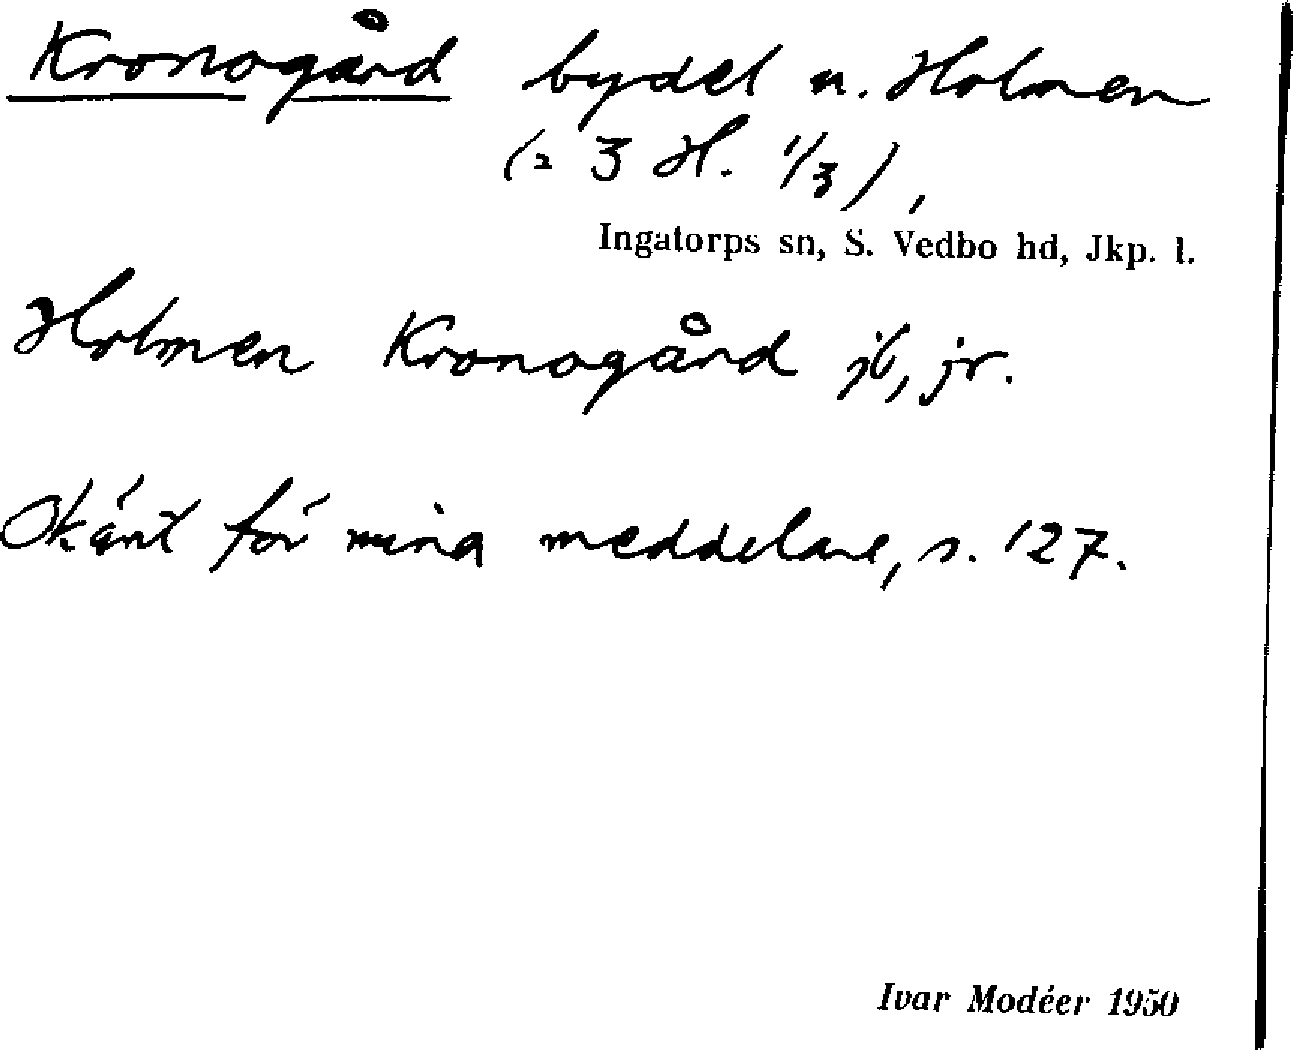 Kronogård bydel u. Holmen
(= 3 H. 1/3),
Ingatorps sn, S. Vedbo hd, Jkp. l.
Holmen Kronogård jb, jr.
Okänt för mina meddelare, s. 127.
Ivar Modéer 1950